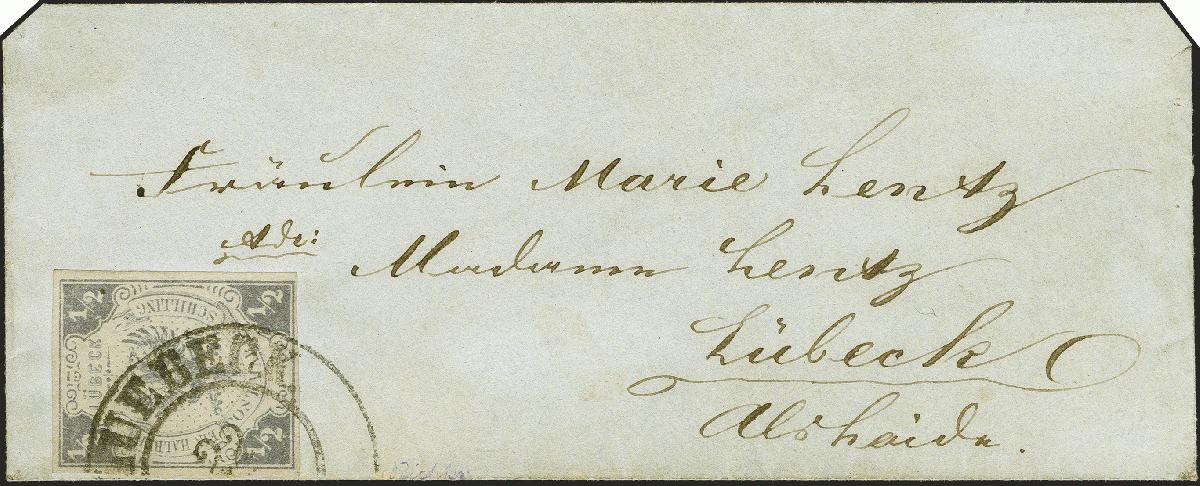 Fräulein Marie Lentz
Adr:
Madame Lentz
Lübeck
Alsheide.
1/2
1/2
SCHILLING
LÜBECK
HALB
1/2
1/2
LUEBECK
23